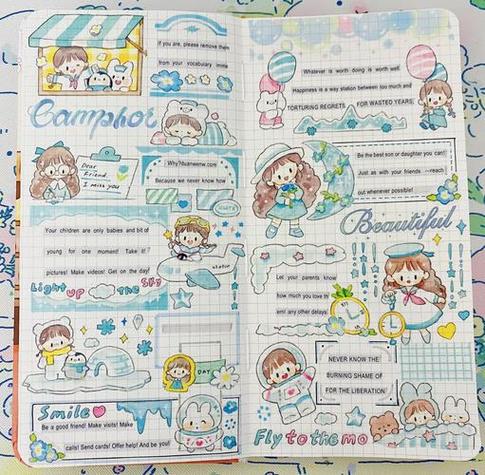 If you are, please remove them
from your vocabulary imme
Camphor
Dear
Friend.
I miss you
Because we never know how
Your children are only babies and bit of
young for one moment! Take it
pictures! Make videos! Get on the day!
Light UP the Sky
DAY
Smile
Be a good friend! Make visits! Make
calls! Send cards! Offer help! And be you!
Whatever is worth doing is worth well.
Happiness is a way station between too much and
TORTURING REGRETS FOR WASTED YEARS,
Be the best son or daughter you can!
Just as with your friends --reach
out whenever possible!
Beautiful
Let your parents know
how much you love th
em! any other delays.
NEVER KNOW THE
BURNING SHAME OF
FOR THE LIBERATION
Fly to the mo